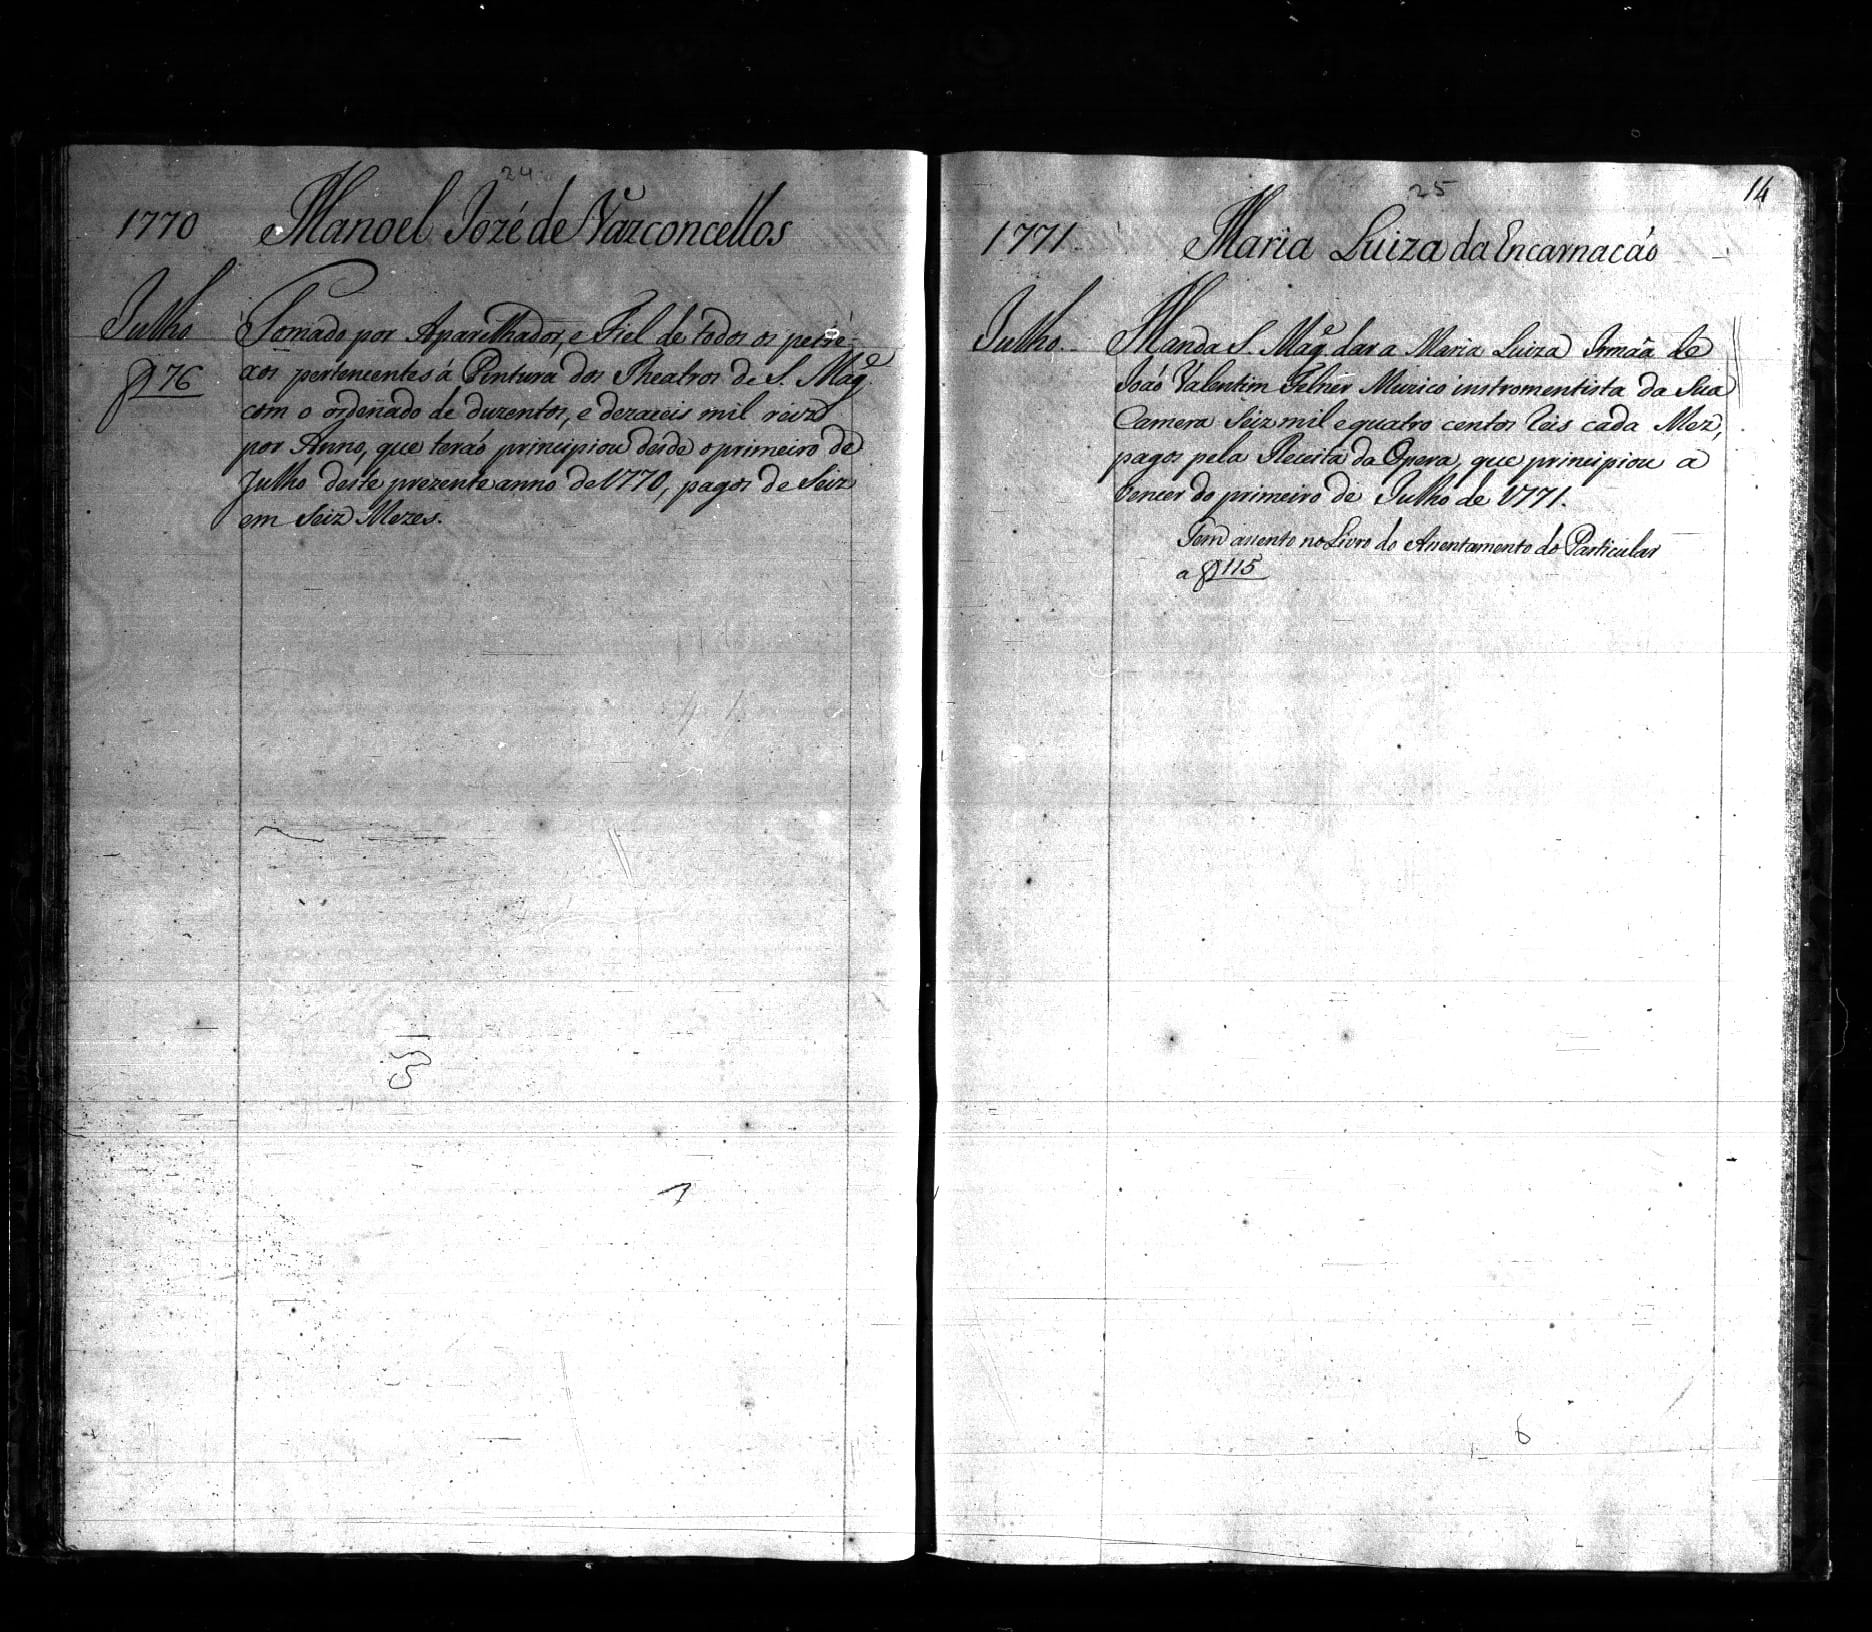 24
1770 Manoel Jozé de Vazconcellos
Julho
f 76
Tomado por Aparelhador, e Fiel de todos os petre-
xos pertencentes á Pintura dos Theatros de S. Mag.e
com o ordenado de duzentos, e dezaceis mil reiz
por Anno, que teráo principiou desde o primeiro de
Julho deste prezente anno de 1770, pagos de Seiz
em Seiz Mezes.
25
14
1771 Maria Luiza da Encarnacáo
Julho
Manda S. Mag.e dar a Maria Luiza Irmãa de
Joáo Valentim Felner Muzico instromentista da Sua
Camera Seiz mil e quatro centos Reis cada Mez,
pagos pela Receita da Opera, que principiou a
vencer do primeiro de Julho de 1771.
Tem assento no Livro do Assentamento do Particular
a f 115